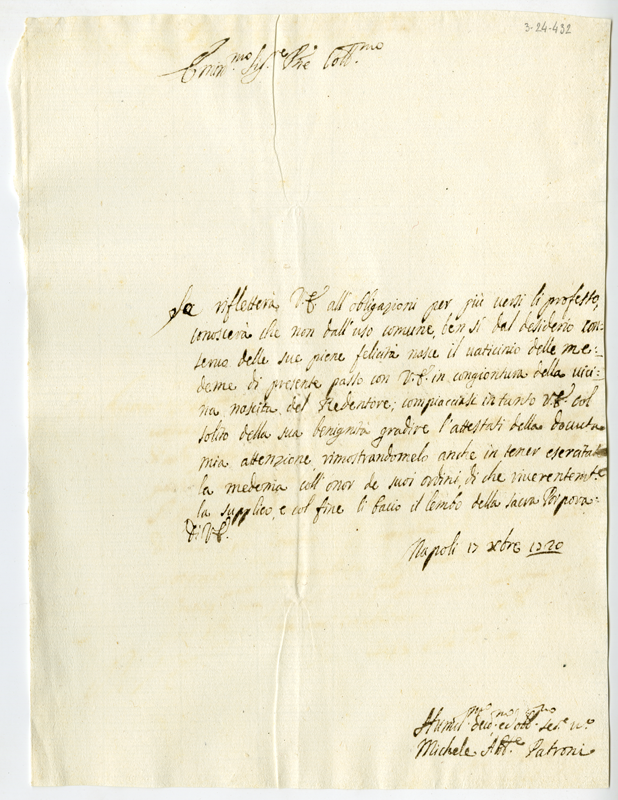 3-24-432
Em.mo Sig.re P̃ne Coll.mo
Se rifletterà V.E. all'obligazioni per più versi li professo,
conoscerà che non dall'uso comune, ben sì dal desiderio con:
servo delle sue piene felicità nasce il vaticinio delle me:
deme di presente passo con V.E. in congiontura della vici:
na nascita del Redentore; compiacciasi intanto V.E. col
solito della sua benignità gradire l'attestati della dovuta
mia attenzione, rimostrandomelo anche in tener esercitata
la medema coll'onor de suoi ordini, di che riverentem.te
la supplico, e col fine li bacio il lembo della sacra Porpora:
Di V.E.
Napoli 17 Xbre 1720
Humil.mo dev.mo ed obl.mo ser.e v.o
Michele Abb.e Patroni